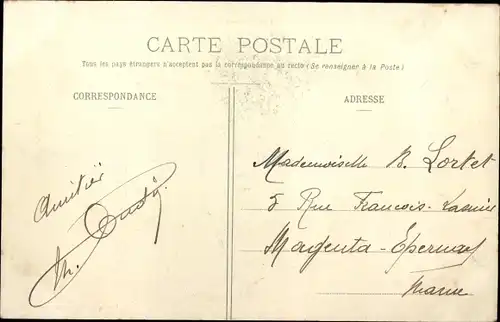 CARTE POSTALE
Tous les pays étrangers n'acceptent pas la correspondance au recto (Se renseigner à la Poste)
CORRESPONDANCE
ADRESSE
Mademoiselle B. Lortet
5 Rue François-
Magenta-Épernay
Marne
Amitiés
M.